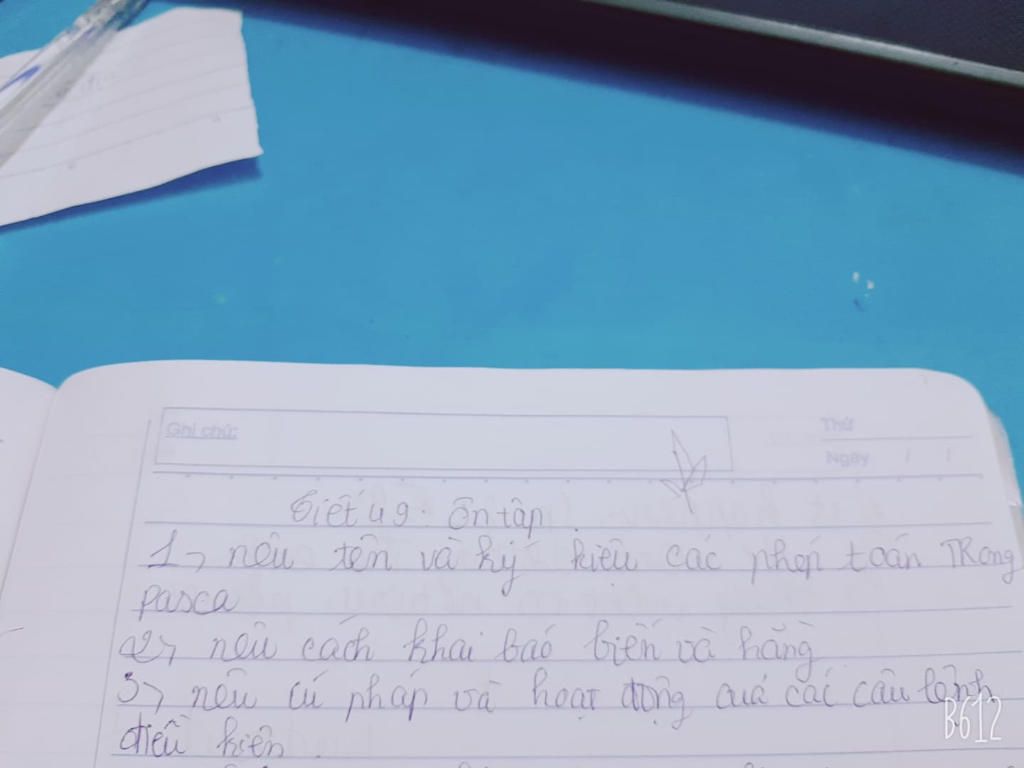 Ghi chú:
Thứ
Ngày / /
Tiết 49: Ôn tập.
1, nêu tên và ký hiêu các phép toán Trong
pasca
2, nêu cách khai báo biến và hằng
3, nêu cú pháp và hoạt động cuả các câu lệnh
điều kiện.
B612